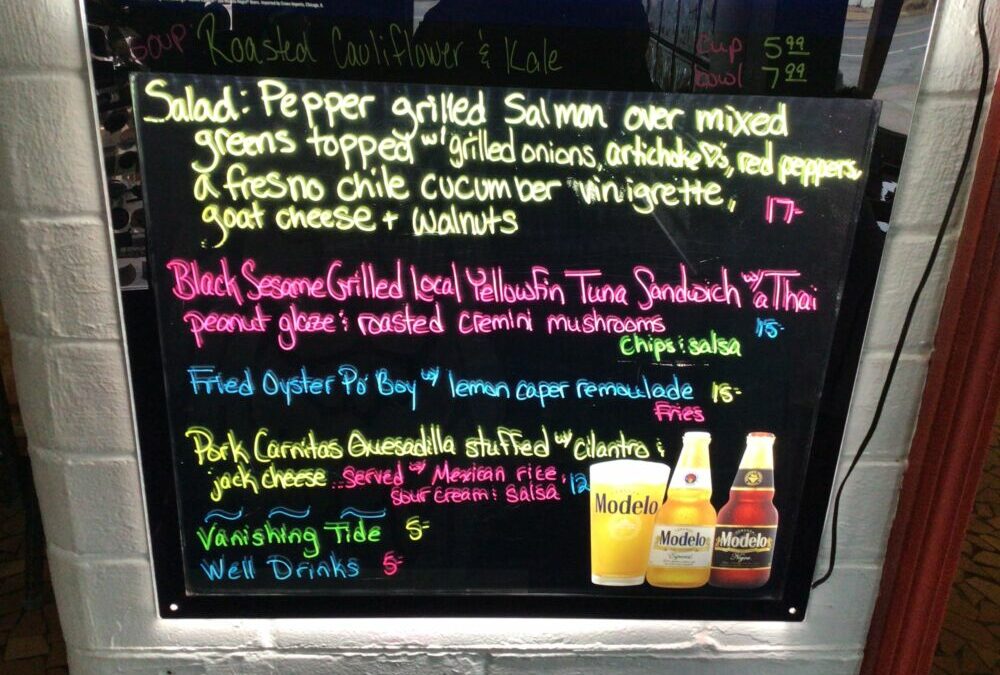 Soup Roasted Cauliflower & Kale cup 5.99
bowl 7.99
Salad: Pepper grilled Salmon over mixed
greens topped w/ grilled onions, artichoke♡s, red peppers,
a fresno chile cucumber vinigrette,
goat cheese + walnuts 17-
Black Sesame Grilled Local Yellowfin Tuna Sandwich w/ a Thai
peanut glaze & roasted cremini mushrooms 15-
chips & salsa
Fried Oyster Po' Boy w/ lemon caper remoulade 15-
Fries
Pork Carnitas Quesadilla stuffed w/ cilantro &
jack cheese...served w/ Mexican rice,
sour cream & salsa 12
Vanishing Tide 5-
Well Drinks 5-
Modelo
Modelo
Especial
Modelo
Negra